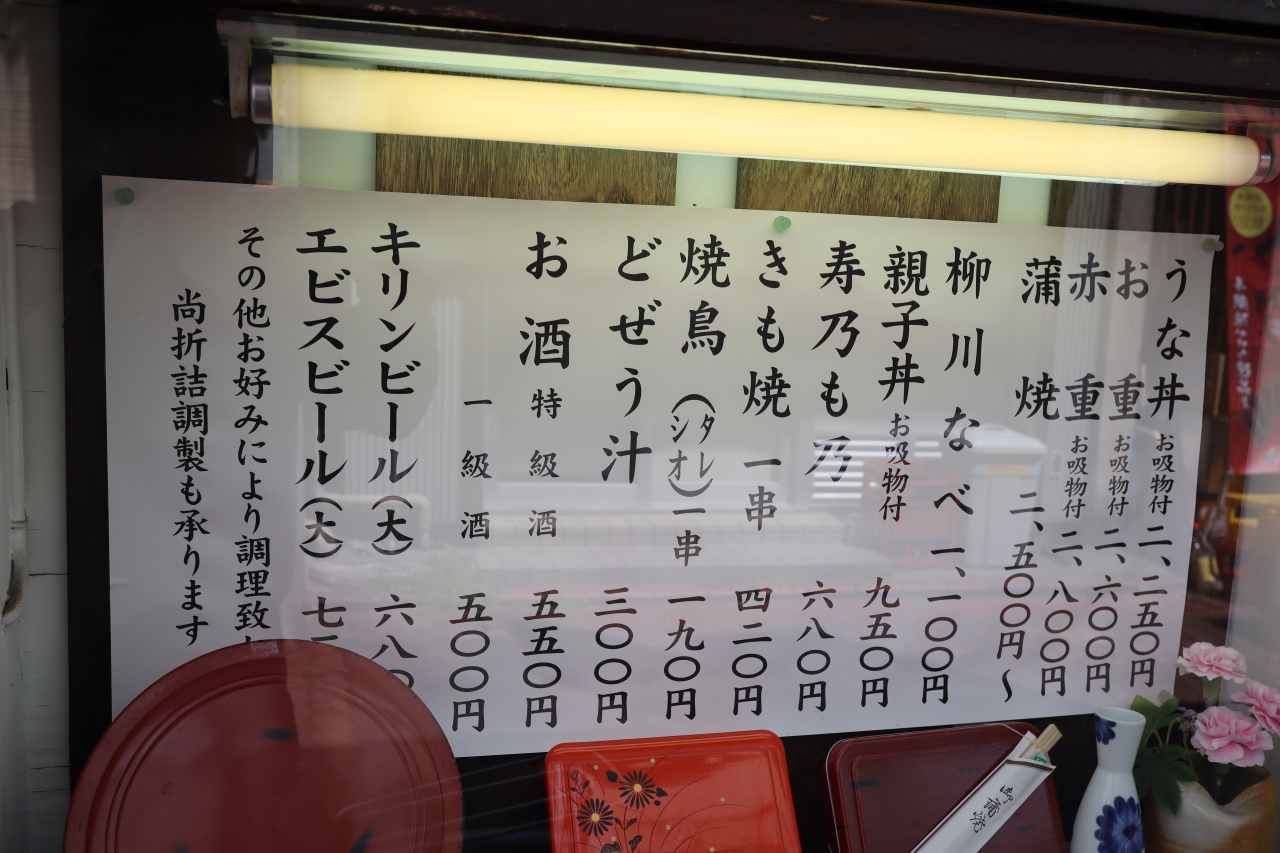 うな丼 お吸物付 二、二五〇円
お重 お吸物付 二、六〇〇円
赤重 お吸物付 二、八〇〇円
蒲焼 二、五〇〇円〜
柳川なべ 一、一〇〇円
親子丼 お吸物付 九五〇円
寿乃も乃 六八〇円
きも焼 一串 四二〇円
焼鳥(タレシオ)一串 一九〇円
どぜう汁 三〇〇円
お酒 特級酒 五五〇円
一級酒 五〇〇円
キリンビール(大) 六八〇
エビスビール(大) 七
その他お好みにより調理致
尚折詰調製も承ります
御蒲焼